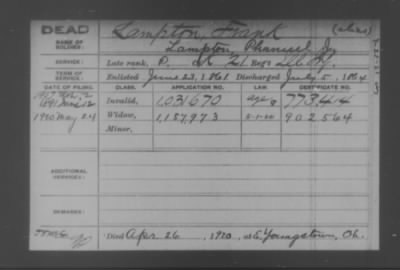 DEAD
Lampton, Frank (alias)
NAME OF SOLDIER:
Lampton, Phanuel Jy
SERVICE: Late rank, P. Co. K 21 Regt Ill. Inf.
TERM OF SERVICE: Enlisted June 23, 1861 Discharged July 5, 1864
DATE OF FILING. CLASS. APPLICATION NO. LAW. CERTIFICATE NO.
1891 12 Invalid, 1,031,670 773,414
1920 May 24 Widow, 1,157,973 5-1-20 902,564
Minor,
ADDITIONAL SERVICES:
REMARKS:
Died Apr 26, 1920, at E. Youngstown, Oh.